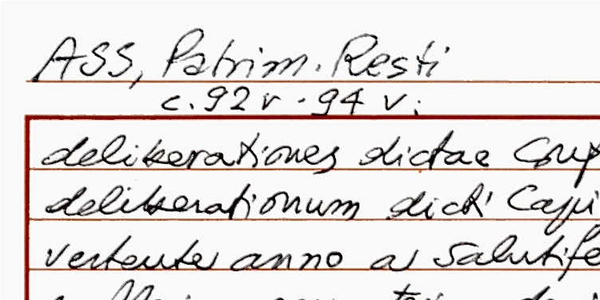 ASS, Patrim. Resti
c. 92 r - 94 v.
deliberationes dictae
deliberationum dicti Capi
vertente anno a Salutife